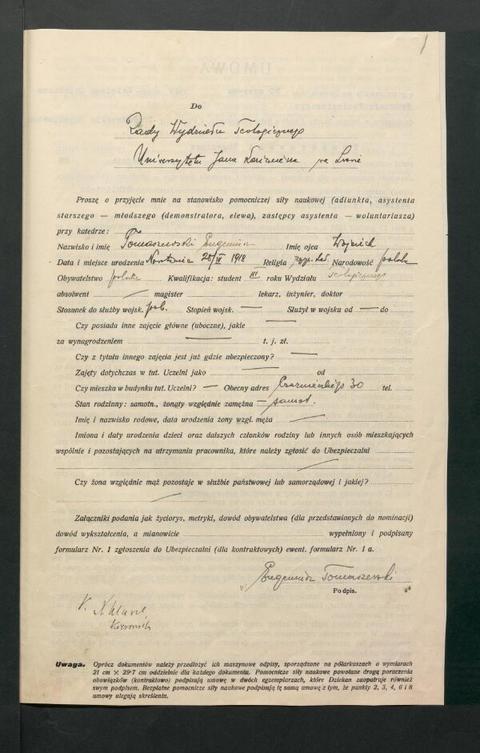 1
Do
Rady Wydziału Teologicznego
Uniwersytetu Jana Kazimierza we Lwowie
Proszę o przyjęcie mnie na stanowisko pomocniczej siły naukowej (adiunkta, asystenta
starszego — młodszego (demonstratora, elewa), zastępcy asystenta — woluntariusza)
przy katedrze:
Nazwisko i imię Tomaszewski Eugeniusz Imię ojca Wojciech
Data i miejsce urodzenia 1918 Religia rzym. kat. Narodowość polska
Obywatelstwo polskie Kwalifikacja: student III roku Wydziału Teologicznego
absolwent — magister lekarz, inżynier, doktor
Stosunek do służby wojsk. Stopień wojsk. — Służył w wojsku od — do
Czy posiada inne zajęcie główne (uboczne), jakie —
za wynagrodzeniem — t. j. zł.
Czy z tytułu innego zajęcia jest już gdzie ubezpieczony? —
Zajęty dotychczas w tut. Uczelni jako — od
Czy mieszka w budynku tut. Uczelni? — Obecny adres 30 tel.
Stan rodzinny: samotn., żonaty względnie zamężna — samot.
Imię i nazwisko rodowe, data urodzenia żony wzgl. męża —
Imiona i daty urodzenia dzieci oraz dalszych członków rodziny lub innych osób mieszkających
wspólnie i pozostających na utrzymaniu pracownika, które należy zgłosić do Ubezpieczalni
—
Czy żona względnie mąż pozostaje w służbie państwowej lub samorządowej i jakiej?
—
Załączniki podania jak życiorys, metryki, dowód obywatelstwa (dla przedstawionych do nominacji)
dowód wykształcenia, a mianowicie wypełniony i podpisany
formularz Nr. 1 zgłoszenia do Ubezpieczalni (dla kontraktowych) ewent. formularz Nr. 1 a.
Eugeniusz Tomaszewski
Podpis.
Uwaga. Oprócz dokumentów należy przedłożyć ich maszynowe odpisy, sporządzone na półarkuszach o wymiarach
21 cm × 29·7 cm oddzielnie dla każdego dokumentu. Pomocnicze siły naukowe powołane drogą poruczenia
obowiązków (kontraktowo) podpisują umowę w dwóch egzemplarzach, które Dziekan zaopatruje również
swym podpisem. Bezpłatne pomocnicze siły naukowe podpisują tę samą umowę z tym, że punkty 2, 3, 4, 6 i 8
umowy ulegają skreśleniu.